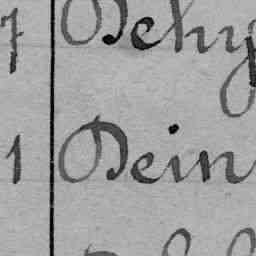 7 Dehy
1 Dein